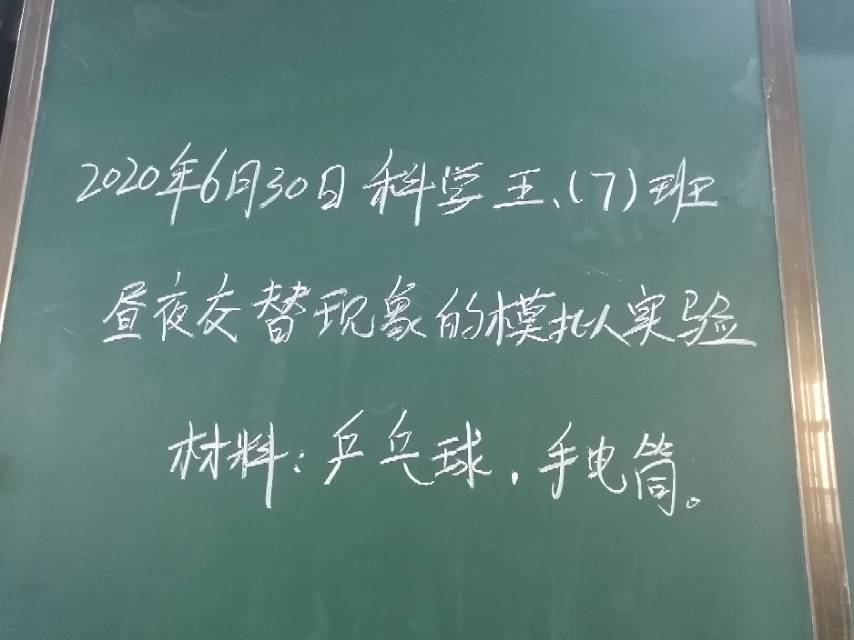 2020年6月30日科学五、(7)班
昼夜交替现象的模拟实验
材料:乒乓球,手电筒。